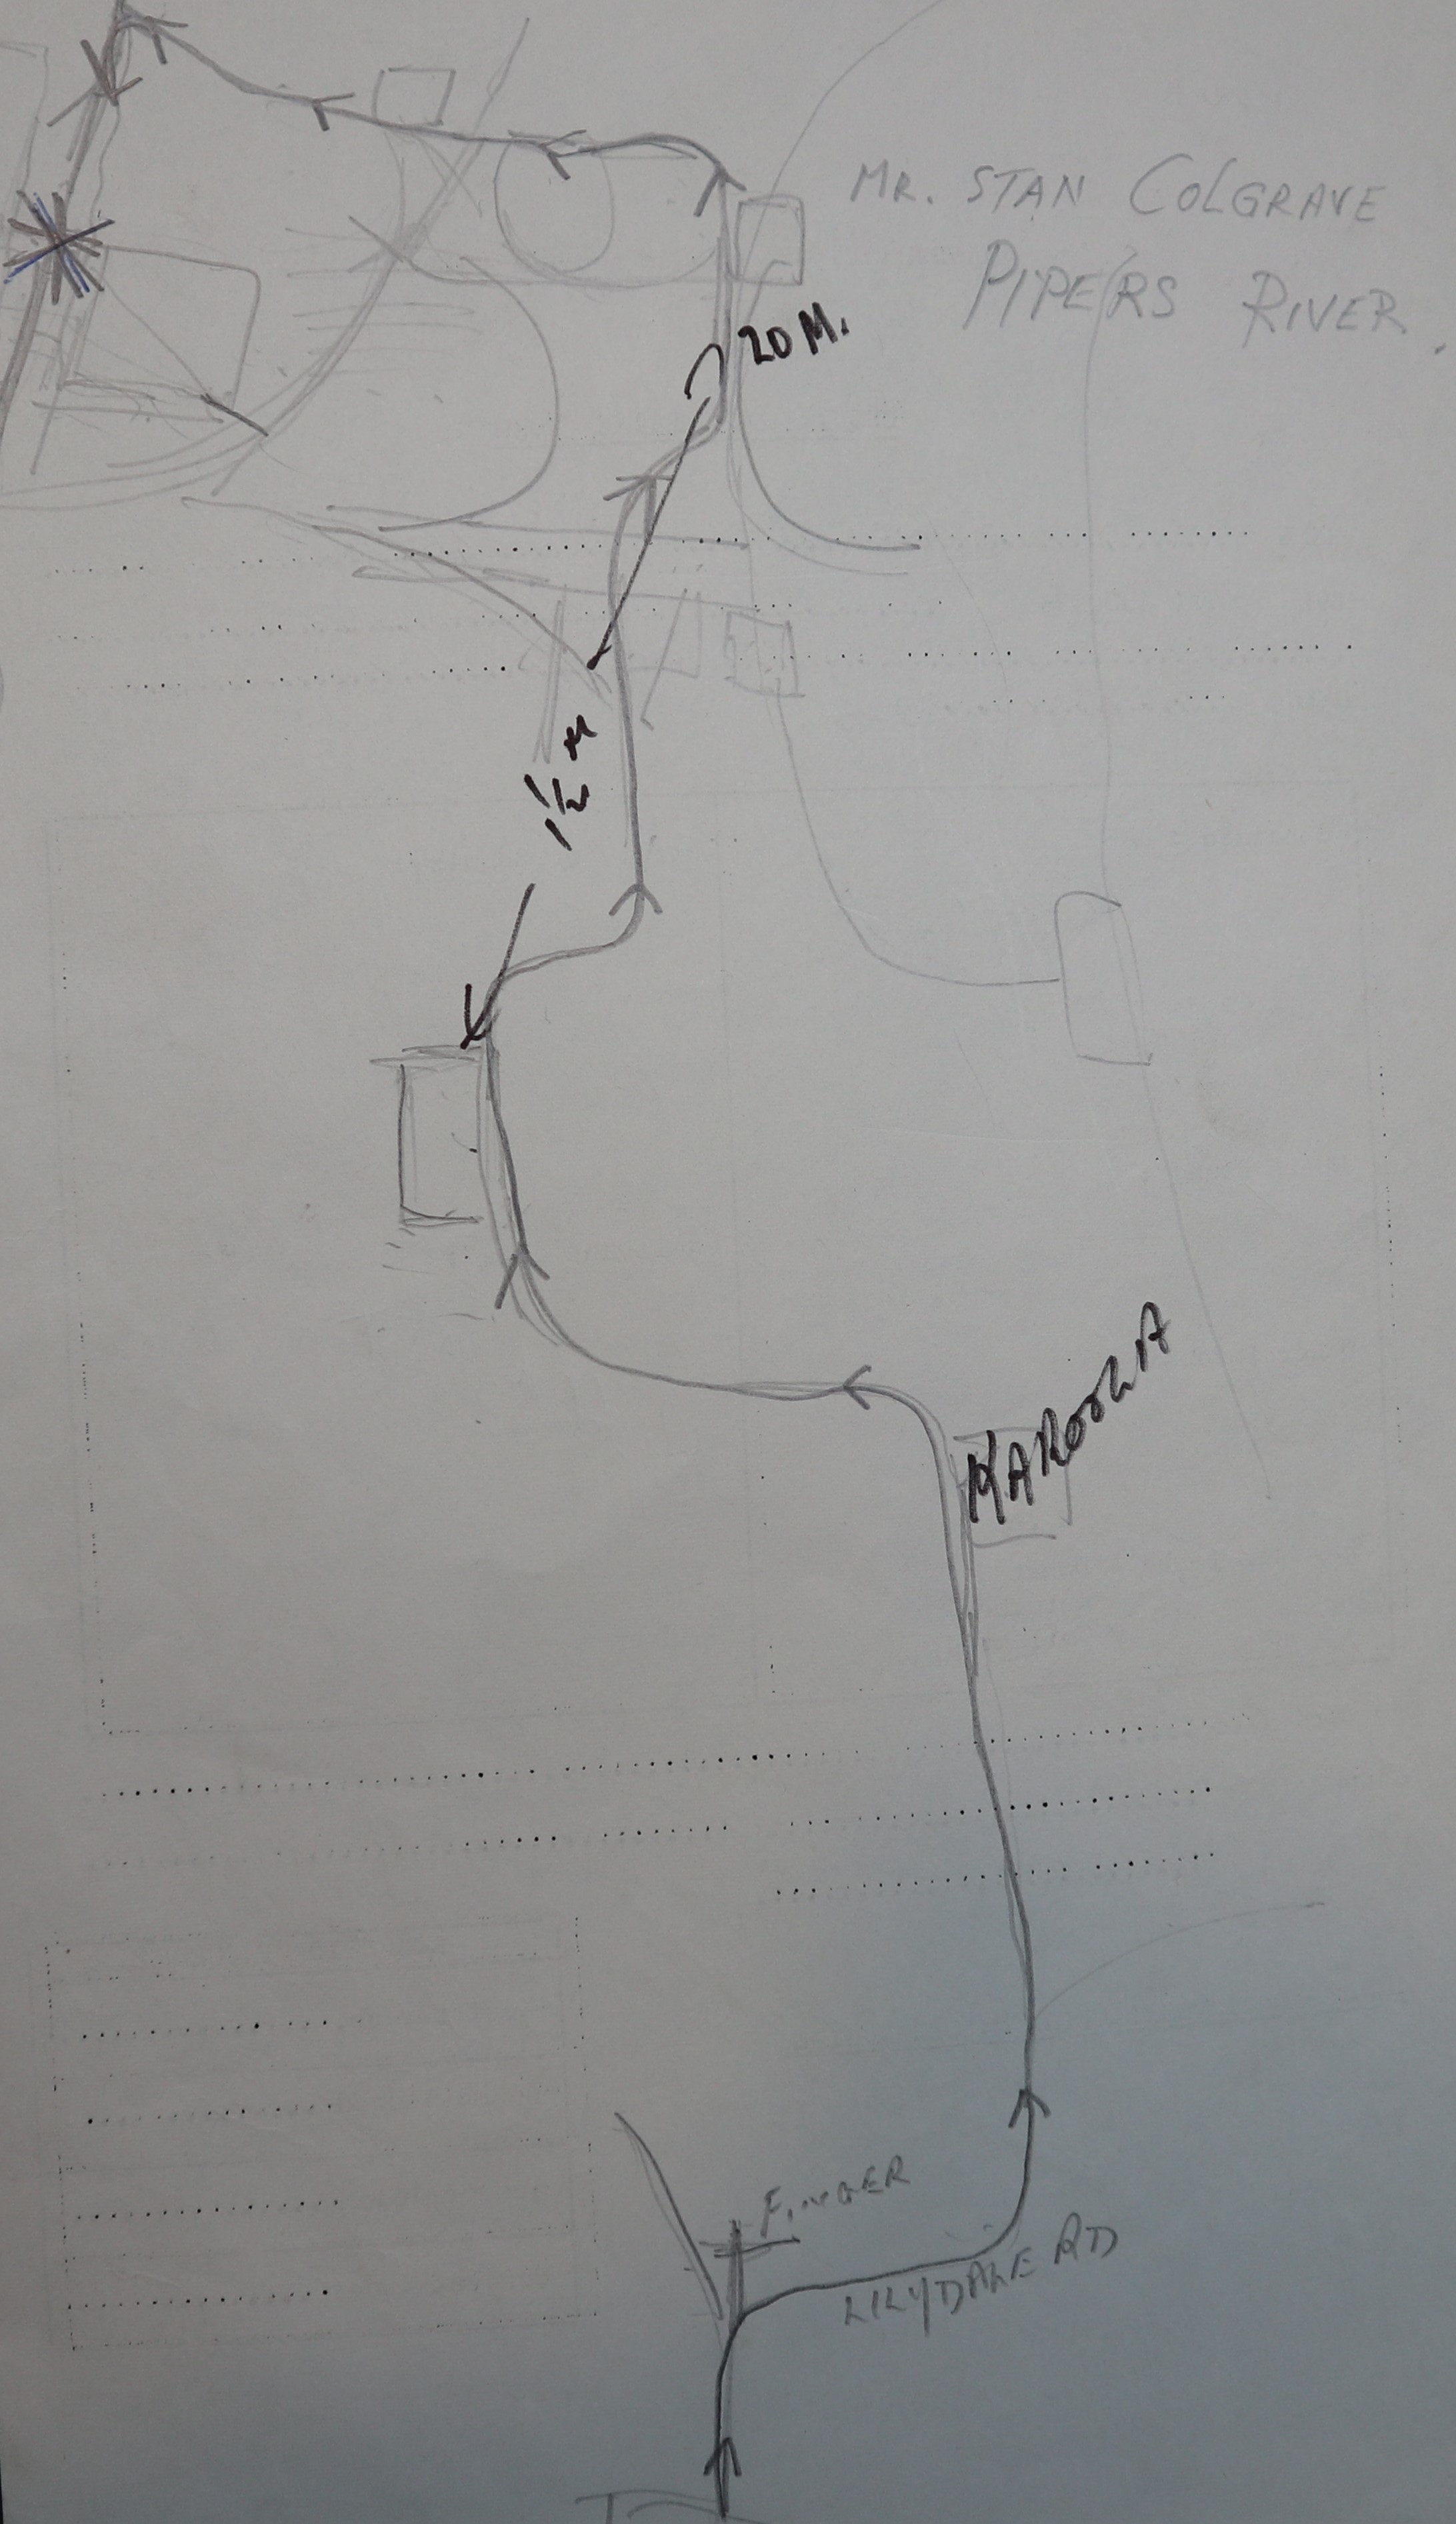 MR. STAN COLGRAVE
PIPERS RIVER.
20 M.
1½ M
KAROOLA
FINGER
LILYDALE RD